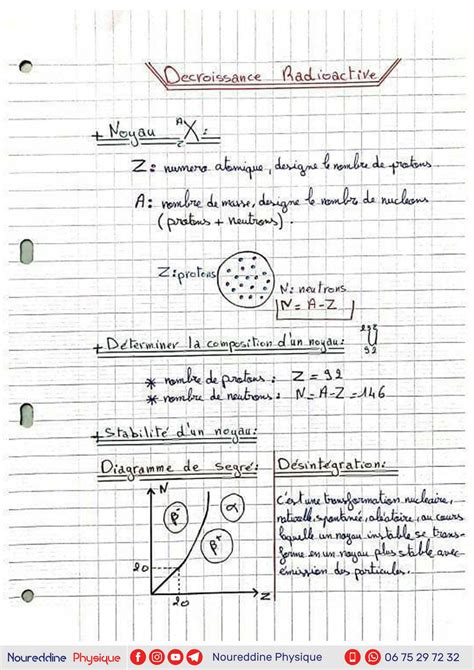 Decroissance Radioactive
+ Noyau ᴬ_Z X :
Z : numero atomique, designe le nombre de protons
A : nombre de masse, designe le nombre de nucleons
(protons + neutrons).
Z: protons
N: neutrons
N = A-Z
+ Déterminer la composition d'un noyau: ²³⁸₉₂U
* nombre de protons : Z = 92
* nombre de neutrons : N = A-Z = 146
+ Stabilité d'un noyau:
Diagramme de segré:
N
β⁻
α
β⁺
20
20
Z
Désintégration:
c'est une transformation nucleaire,
naturelle, spontanée, aléatoire, au cours
laquelle un noyau instable se trans-
forme en un noyau plus stable avec
émission des particules.
Noureddine Physique
Noureddine Physique
06 75 29 72 32